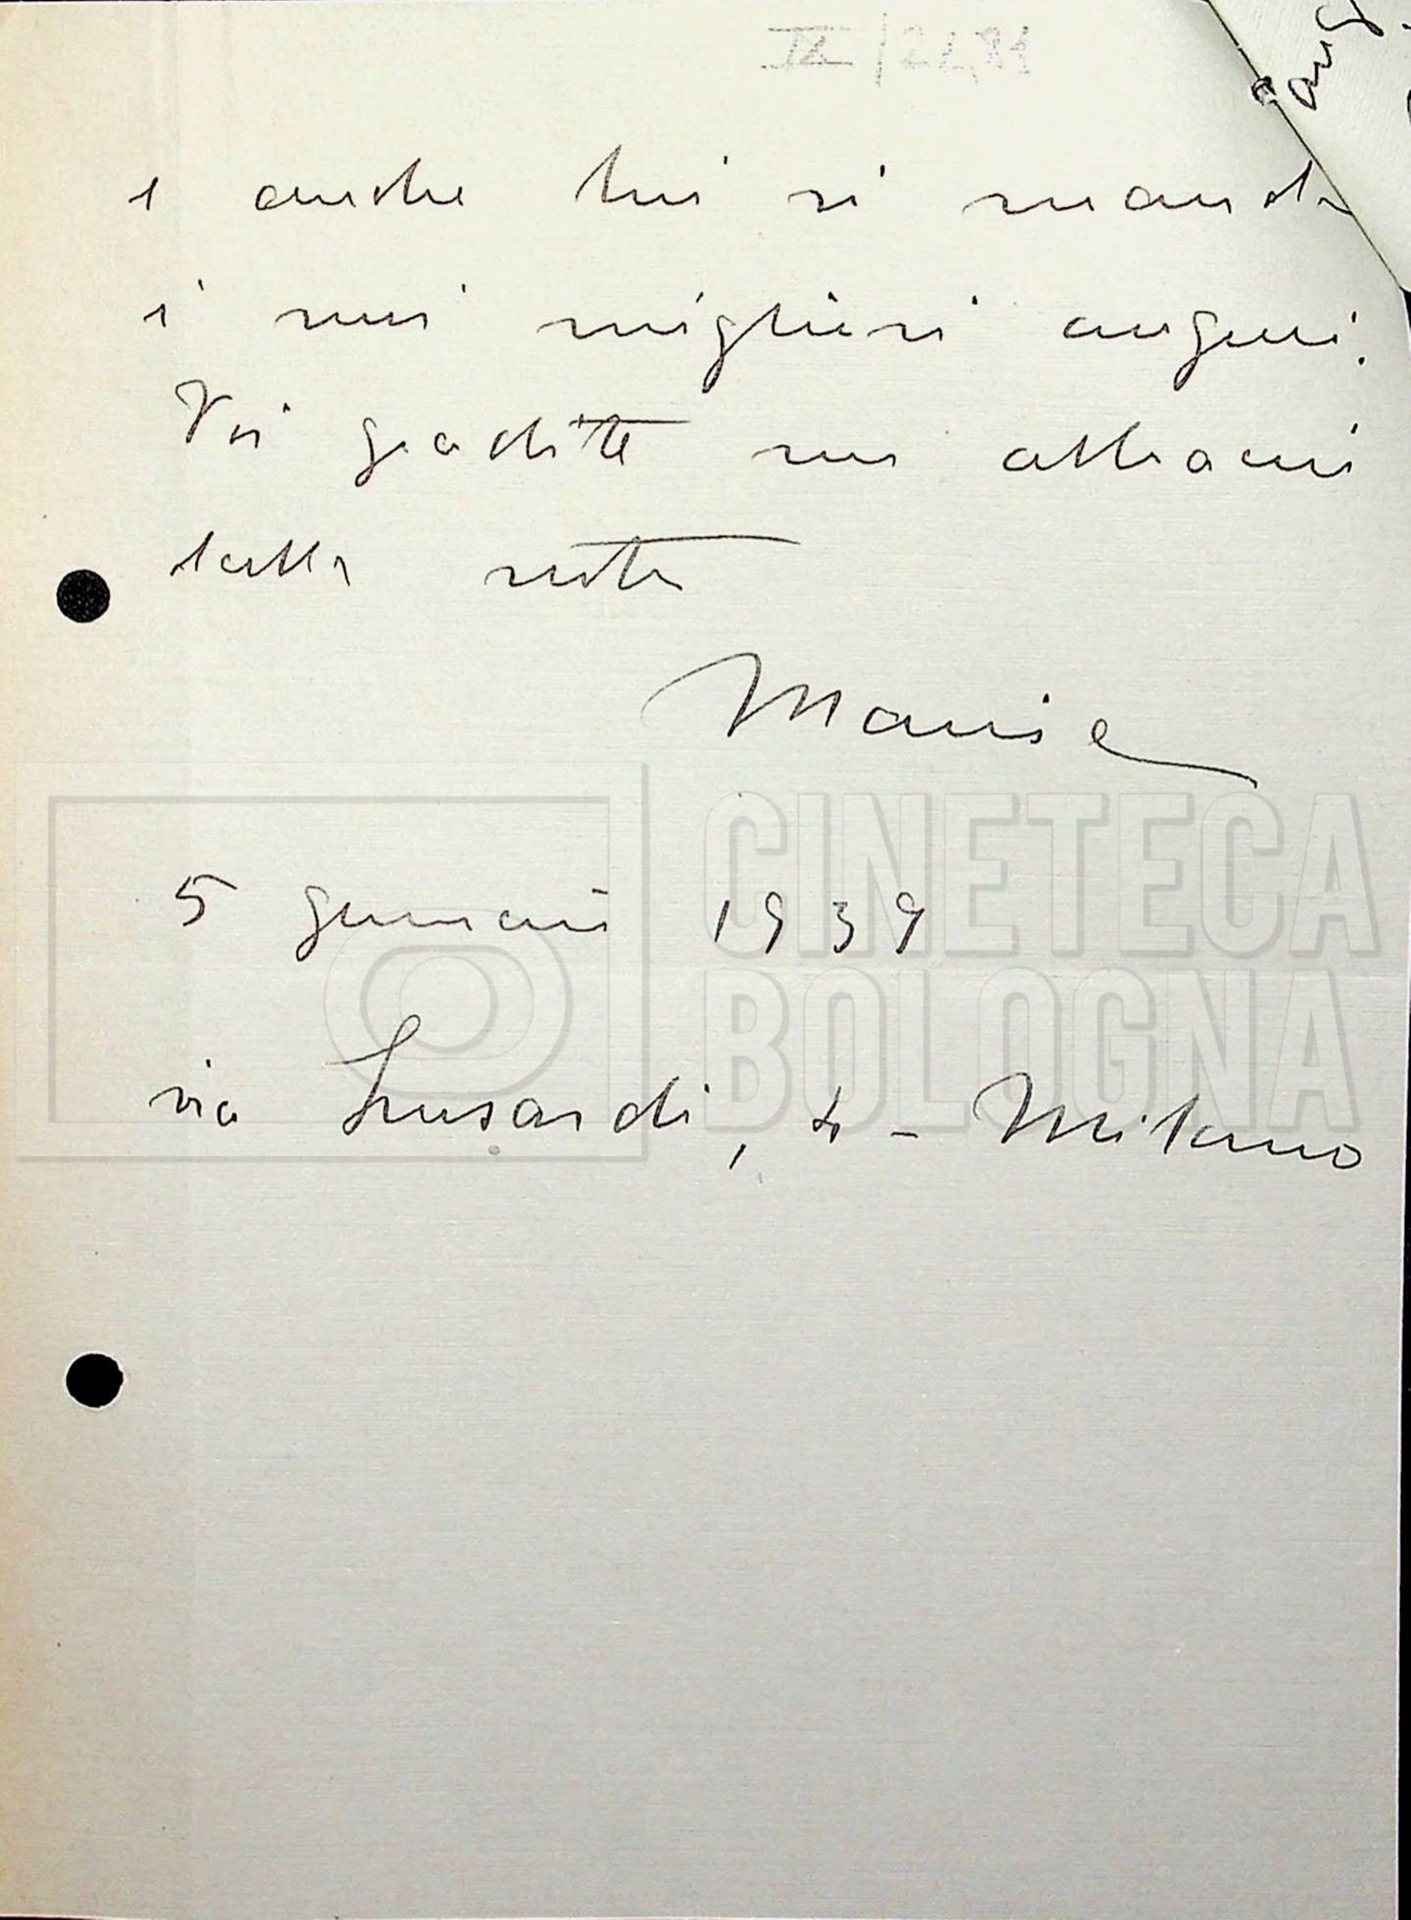 e anche lui vi manda
i suoi migliori auguri.
Voi gradite un abbraccio
dalla vostra
Maria
5 gennaio 1939
via Lusardi, 4 - Milano
CINETECA
BOLOGNA